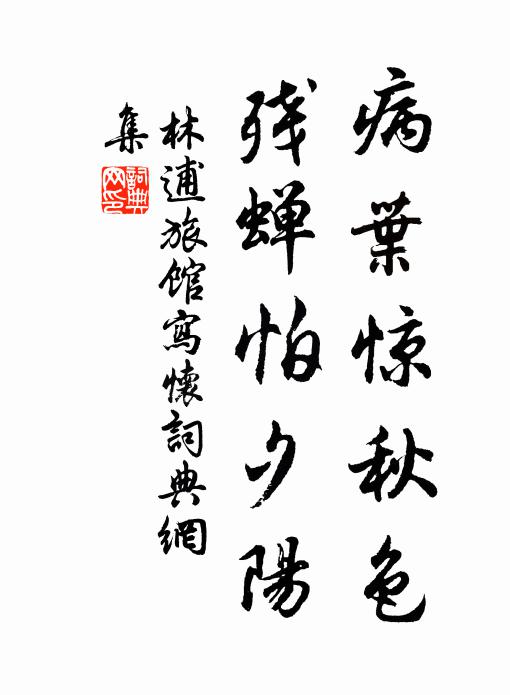 病葉惊秋色
残蝉怕夕陽
林逋旅館寫懷詞典網
集
詞典
网印